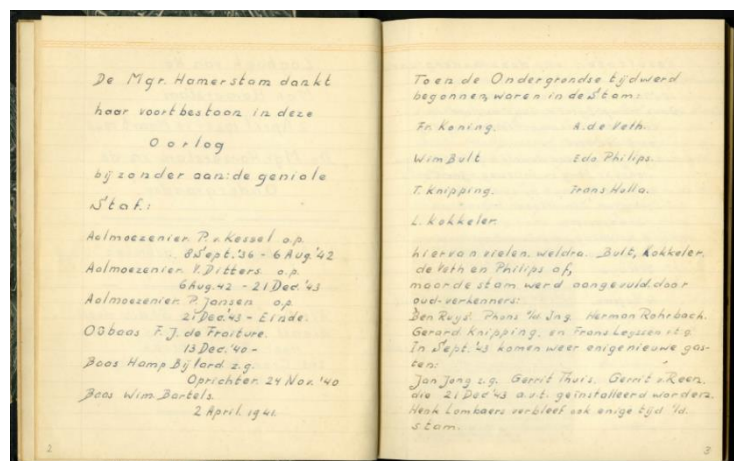 De Mgr. Hamerstam dankt
haar voortbestaan in deze
Oorlog
bijzonder aan: de geniale
Staf:
Aalmoezenier P. v. Kessel o.p.
8 Sept. '36 - 6 Aug. '42
Aalmoezenier V. Ditters. o.p.
6 Aug. 42 - 21 Dec. '43
Aalmoezenier P. Jansen o.p.
21 Dec. '43 - Einde.
Oubaas F. J. de Fraiture.
13 Dec. '40 -
Baas Hamp Bijlard. z.g.
Oprichter. 24 Nov. '40
Baas Wim Bartels.
2 April. 1941.
2
Toen de Ondergrondse tijd werd
begonnen, waren in de Stam:
Fr. Koning. A. de Veth.
Wim Bult Edo Philips.
T. Knipping. Frans Holla.
L. Kokkeler.
hiervan vielen weldra Bult, Kokkeler.
de Veth en Philips af,
maar de stam werd aangevuld door
oud-verkenners:
Ben Ruys. Phons Herman Rohrbach.
Gerard Knipping, en Frans Leyssen
In Sept. '43 komen weer enige nieuwe gas-
ten:
Jan Jong z.g. Gerrit Thuis. Gerrit v. Reen.
die 21 Dec '43 a.v.t. geïnstalleerd worden.
Henk Lombaers verbleef ook enige tijd i/d.
stam.
3